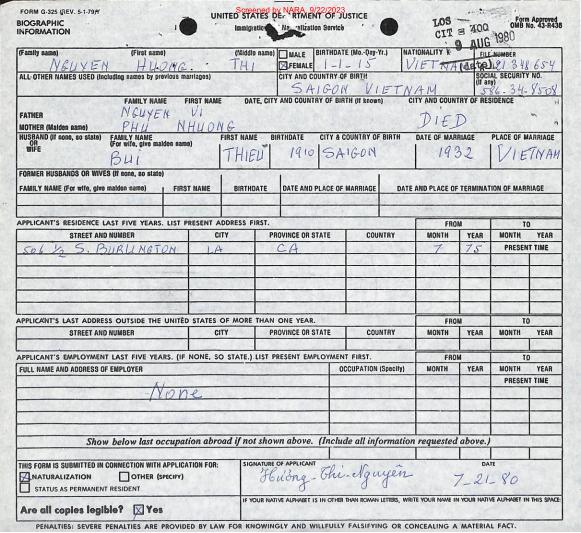 FORM G-325 (REV. 5-1-79)
BIOGRAPHIC INFORMATION
Screened by NARA, 9/22/2023
UNITED STATES DEPARTMENT OF JUSTICE
Immigration Naturalization Service
LOS
CIT = 400
9 AUG 1980
Form Approved
OMB No. 43-R436
(Family name) (First name) (Middle name) MALE BIRTHDATE (Mo.-Day-Yr.) NATIONALITY FILE NUMBER
NGUYEN HUONG. THI FEMALE 1-1-15 VIETNAM
ALL OTHER NAMES USED (Including names by previous marriages) CITY AND COUNTRY OF BIRTH SOCIAL SECURITY NO. (If any)
SAIGON VIETNAM 586-34-8508
FAMILY NAME FIRST NAME DATE, CITY AND COUNTRY OF BIRTH (If known) CITY AND COUNTRY OF RESIDENCE
FATHER NGUYEN VI DIED
MOTHER (Maiden name) PHU NHUONG
HUSBAND (If none, so state) OR WIFE FAMILY NAME (For wife, give maiden name) FIRST NAME BIRTHDATE CITY & COUNTRY OF BIRTH DATE OF MARRIAGE PLACE OF MARRIAGE
BUI THIEU 1910 SAIGON 1932 VIETNAM
FORMER HUSBANDS OR WIVES (If none, so state)
FAMILY NAME (For wife, give maiden name) FIRST NAME BIRTHDATE DATE AND PLACE OF MARRIAGE DATE AND PLACE OF TERMINATION OF MARRIAGE
APPLICANT'S RESIDENCE LAST FIVE YEARS. LIST PRESENT ADDRESS FIRST. FROM TO
STREET AND NUMBER CITY PROVINCE OR STATE COUNTRY MONTH YEAR MONTH YEAR
506 1/2 S. BURLINGTON LA CA 7 75 PRESENT TIME
APPLICANT'S LAST ADDRESS OUTSIDE THE UNITED STATES OF MORE THAN ONE YEAR. FROM TO
STREET AND NUMBER CITY PROVINCE OR STATE COUNTRY MONTH YEAR MONTH YEAR
APPLICANT'S EMPLOYMENT LAST FIVE YEARS. (IF NONE, SO STATE.) LIST PRESENT EMPLOYMENT FIRST. FROM TO
FULL NAME AND ADDRESS OF EMPLOYER OCCUPATION (Specify) MONTH YEAR MONTH YEAR
PRESENT TIME
None
Show below last occupation abroad if not shown above. (Include all information requested above.)
THIS FORM IS SUBMITTED IN CONNECTION WITH APPLICATION FOR: SIGNATURE OF APPLICANT DATE
NATURALIZATION OTHER (SPECIFY) Hương-Thi-Nguyễn 7-21-80
STATUS AS PERMANENT RESIDENT
Are all copies legible? Yes IF YOUR NATIVE ALPHABET IS IN OTHER THAN ROMAN LETTERS, WRITE YOUR NAME IN YOUR NATIVE ALPHABET IN THIS SPACE:
PENALTIES: SEVERE PENALTIES ARE PROVIDED BY LAW FOR KNOWINGLY AND WILLFULLY FALSIFYING OR CONCEALING A MATERIAL FACT.